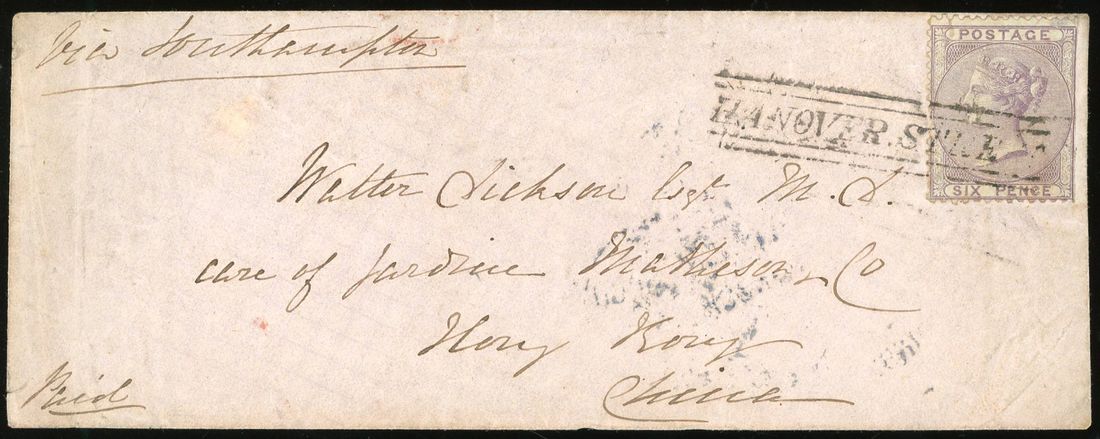 Via Southampton
POSTAGE
HANOVER. STREET
SIX PENCE
Walter Dickson Esqr. M.D.
care of Jardine Matheson & Co
Hong Kong
China
Paid